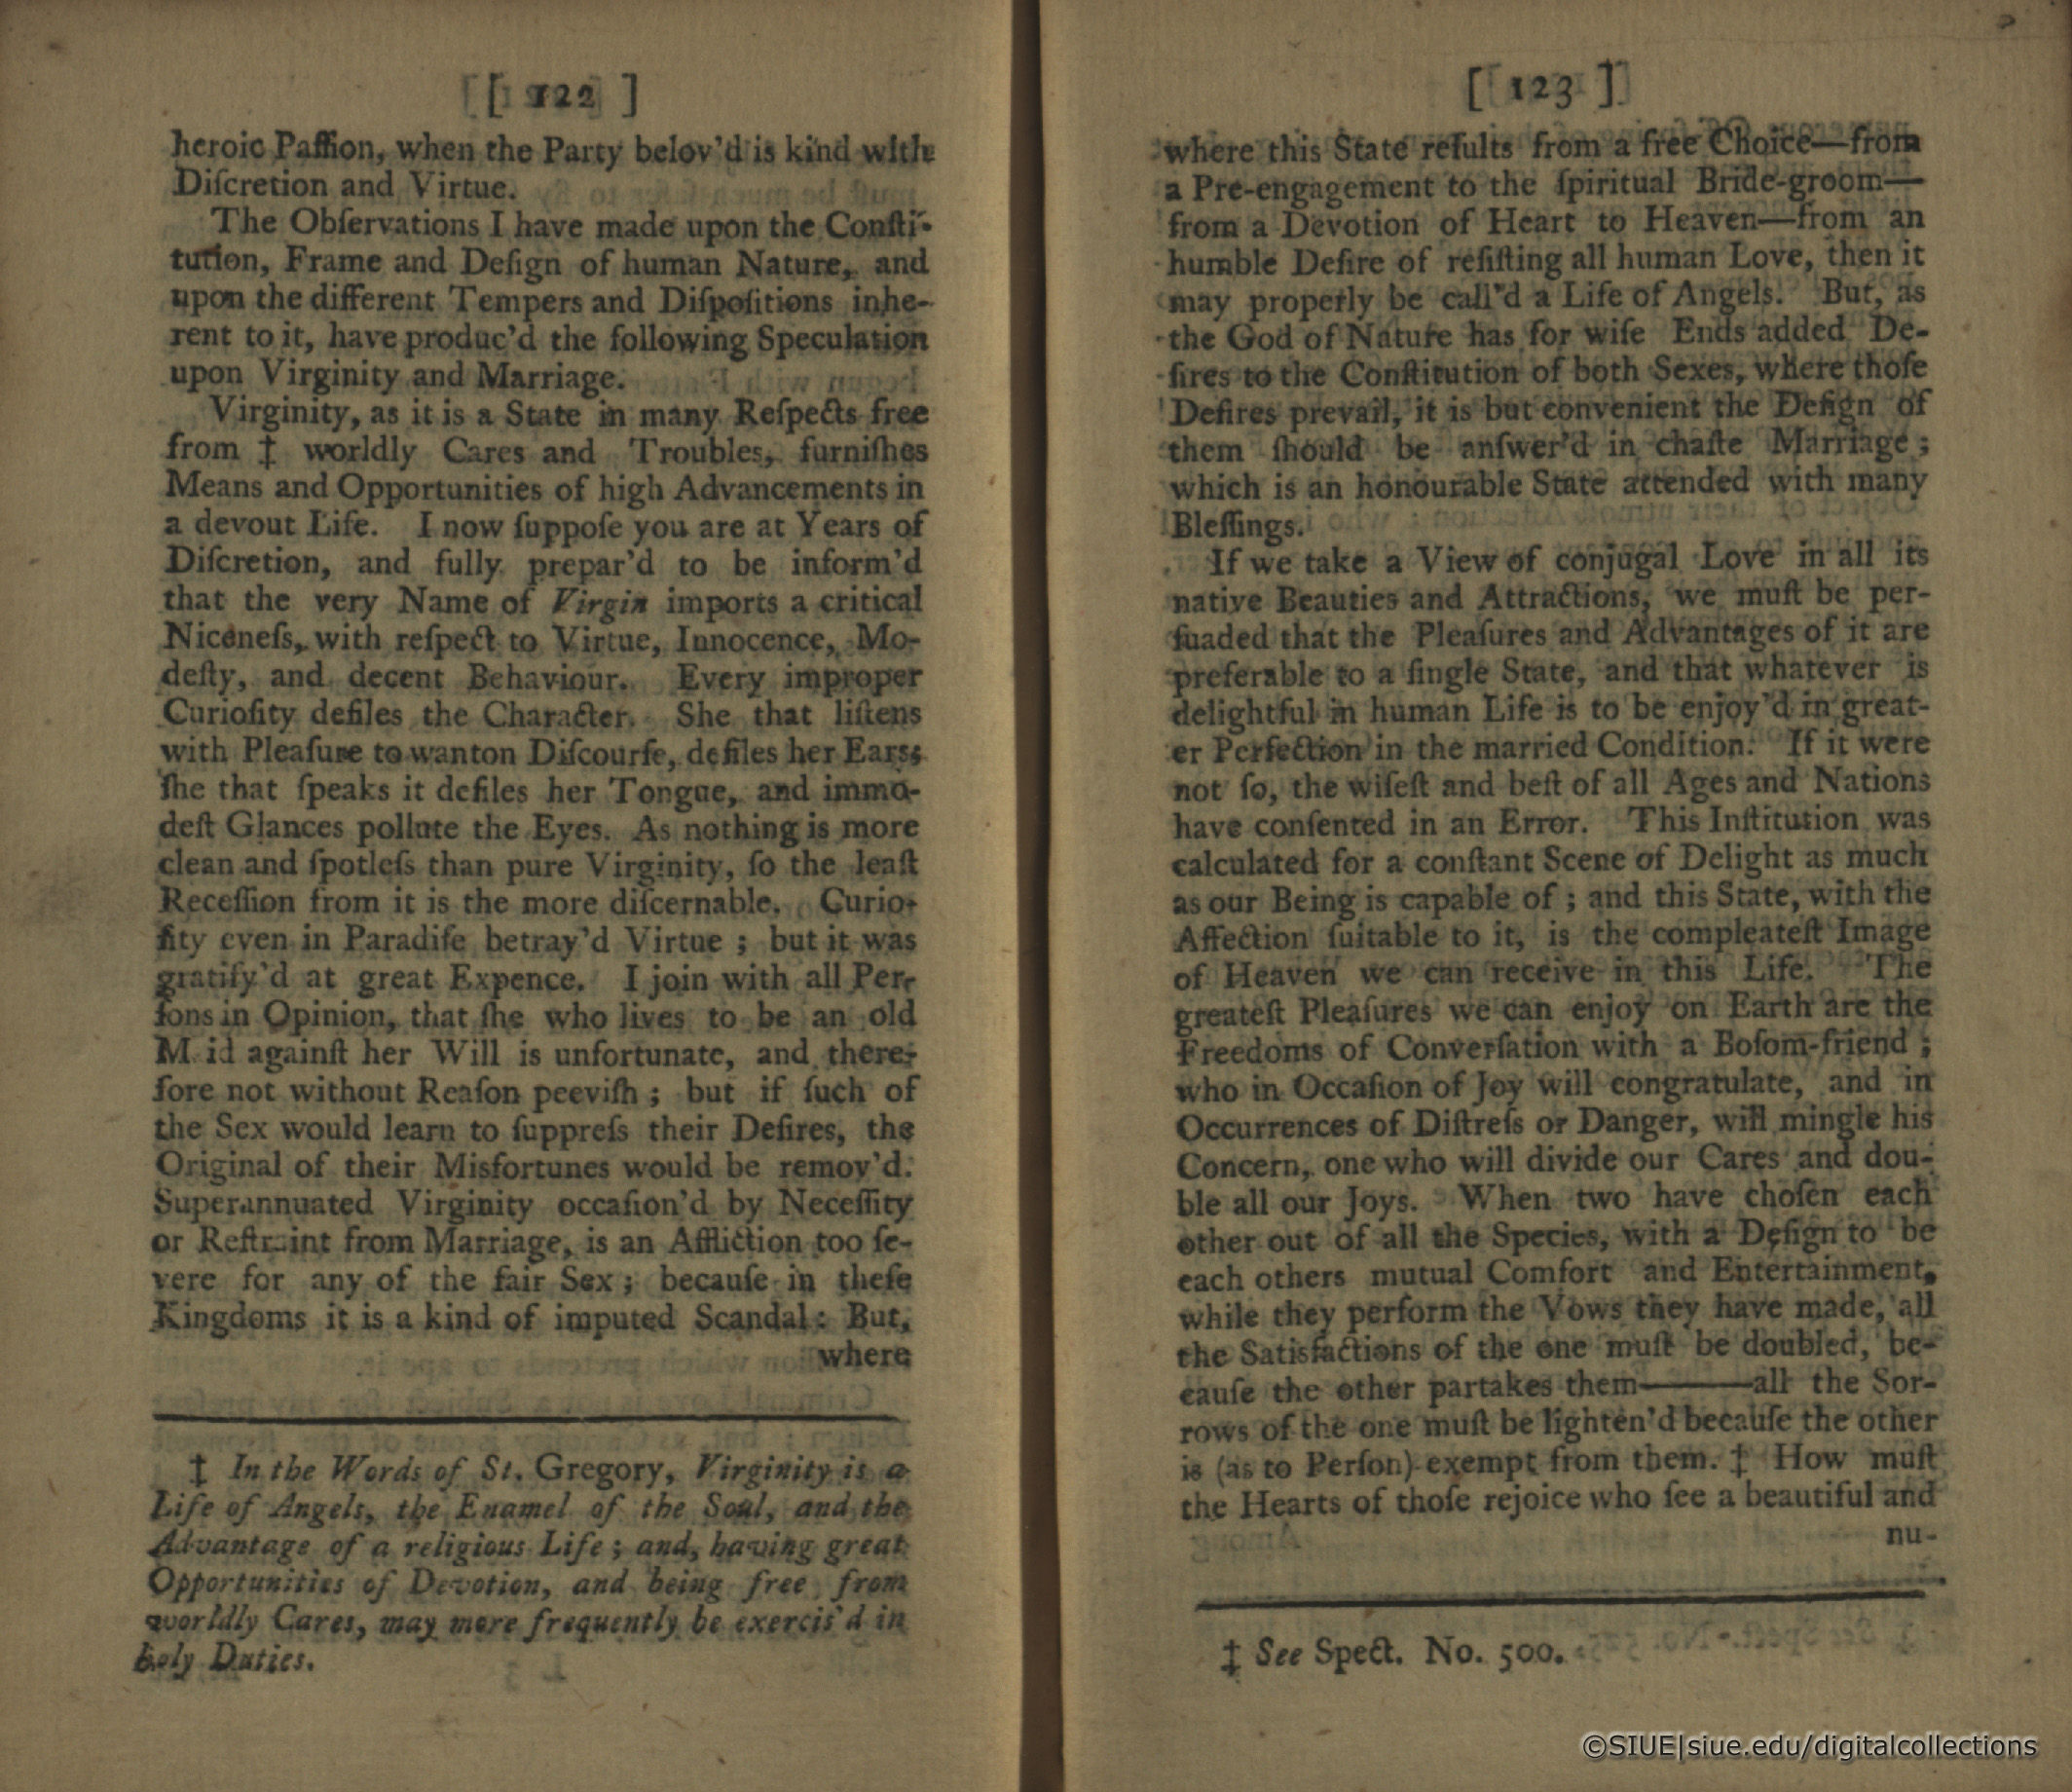 [ 122 ]
heroic Paſſion, when the Party belov'd is kind with
Diſcretion and Virtue.
The Obſervations I have made upon the Conſti-
tution, Frame and Deſign of human Nature, and
upon the different Tempers and Diſpoſitions inhe-
rent to it, have produc'd the following Speculation
upon Virginity and Marriage.
Virginity, as it is a State in many Reſpects free
from ‡ worldly Cares and Troubles, furniſhes
Means and Opportunities of high Advancements in
a devout Life. I now ſuppoſe you are at Years of
Diſcretion, and fully prepar'd to be inform'd
that the very Name of Virgin imports a critical
Niceneſs, with reſpect to Virtue, Innocence, Mo-
deſty, and decent Behaviour. Every improper
Curioſity defiles the Character. She that liſtens
with Pleaſure to wanton Diſcourſe, defiles her Ears;
ſhe that ſpeaks it defiles her Tongue, and immo-
deſt Glances pollute the Eyes. As nothing is more
clean and ſpotleſs than pure Virginity, ſo the leaſt
Receſſion from it is the more diſcernable. Curio-
ſity even in Paradiſe betray'd Virtue ; but it was
gratify'd at great Expence. I join with all Per-
ſons in Opinion, that ſhe who lives to be an old
M id againſt her Will is unfortunate, and there-
fore not without Reaſon peeviſh ; but if ſuch of
the Sex would learn to ſuppreſs their Deſires, the
Original of their Misfortunes would be remov'd.
Superannuated Virginity occaſion'd by Neceſſity
or Reſtraint from Marriage, is an Affliction too ſe-
vere for any of the fair Sex ; becauſe in theſe
Kingdoms it is a kind of imputed Scandal : But,
where
‡ In the Words of St. Gregory, Virginity is a
Life of Angels, the Enamel of the Soul, and the
Advantage of a religious Life ; and, having great
Opportunities of Devotion, and being free from
worldly Cares, may more frequently be exercis'd in
holy Duties.
[ 123 ]
where this State reſults from a free Choice—from
a Pre-engagement to the ſpiritual Bride-groom—
from a Devotion of Heart to Heaven—from an
humble Deſire of reſiſting all human Love, then it
may properly be call'd a Life of Angels. But, as
the God of Nature has for wiſe Ends added De-
ſires to the Conſtitution of both Sexes, where thoſe
Deſires prevail, it is but convenient the Deſign of
them ſhould be anſwer'd in chaſte Marriage ;
which is an honourable State attended with many
Bleſſings.
If we take a View of conjugal Love in all its
native Beauties and Attractions, we muſt be per-
ſuaded that the Pleaſures and Advantages of it are
preferable to a ſingle State, and that whatever is
delightful in human Life is to be enjoy'd in great-
er Perfection in the married Condition. If it were
not ſo, the wiſeſt and beſt of all Ages and Nations
have conſented in an Error. This Inſtitution was
calculated for a conſtant Scene of Delight as much
as our Being is capable of ; and this State, with the
Affection ſuitable to it, is the compleateſt Image
of Heaven we can receive in this Life. The
greateſt Pleaſures we can enjoy on Earth are the
Freedoms of Converſation with a Boſom-friend ;
who in Occaſion of Joy will congratulate, and in
Occurrences of Diſtreſs or Danger, will mingle his
Concern, one who will divide our Cares and dou-
ble all our Joys. When two have choſen each
other out of all the Species, with a Deſign to be
each others mutual Comfort and Entertainment,
while they perform the Vows they have made, all
the Satisfactions of the one muſt be doubled, be-
cauſe the other partakes them———all the Sor-
rows of the one muſt be lighten'd becauſe the other
is (as to Perſon) exempt from them. ‡ How muſt
the Hearts of thoſe rejoice who ſee a beautiful and
nu-
‡ See Spect. No. 500.
©SIUE|siue.edu/digitalcollections